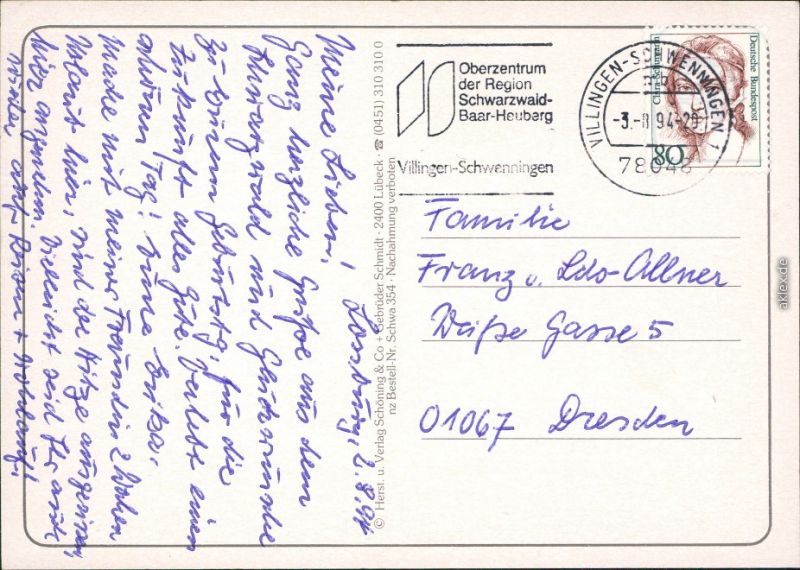 Oberzentrum
der Region
Schwarzwald-
Baar-Heuberg
Villingen-Schwenningen
VILLINGEN-SCHWENNINGEN 1
-3.-8.94-20
78048
Deutsche Bundespost
Clara Schumann
80
Familie
Franz u. Udo Allner
Weiße Gasse 5
01067 Dresden
Lossburg, 2.8.94
Meine Lieben!
Ganz herzliche Grüße aus dem
Schwarzwald und Glückwünsche
zu Deinem Geburtstag, für die
Zukunft alles Gute. Verlebt einen
schönen Tag! Eure Erika.
Mache mit meiner Freundin 2 Wochen
Urlaub hier, sind der Hitze ausgerissen,
hier angenehm. Vielleicht seid Ihr auch
wieder auf Reisen +
© Herst. u. Verlag Schöning & Co + Gebrüder Schmidt · 2400 Lübeck · ☎ (0451) 310 310 0
nz Bestell-Nr. Schwa 354 · Nachahmung verboten
aklex.de